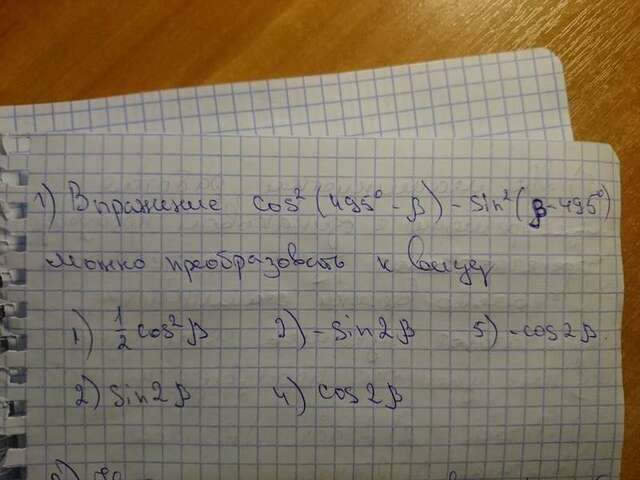 1) Выражение cos² (495° - β) - sin² (β - 495°)
можно преобразовать к виду
1) 1/2 cos² β 3) - sin 2β 5) - cos 2β.
2) sin 2β 4) cos 2β